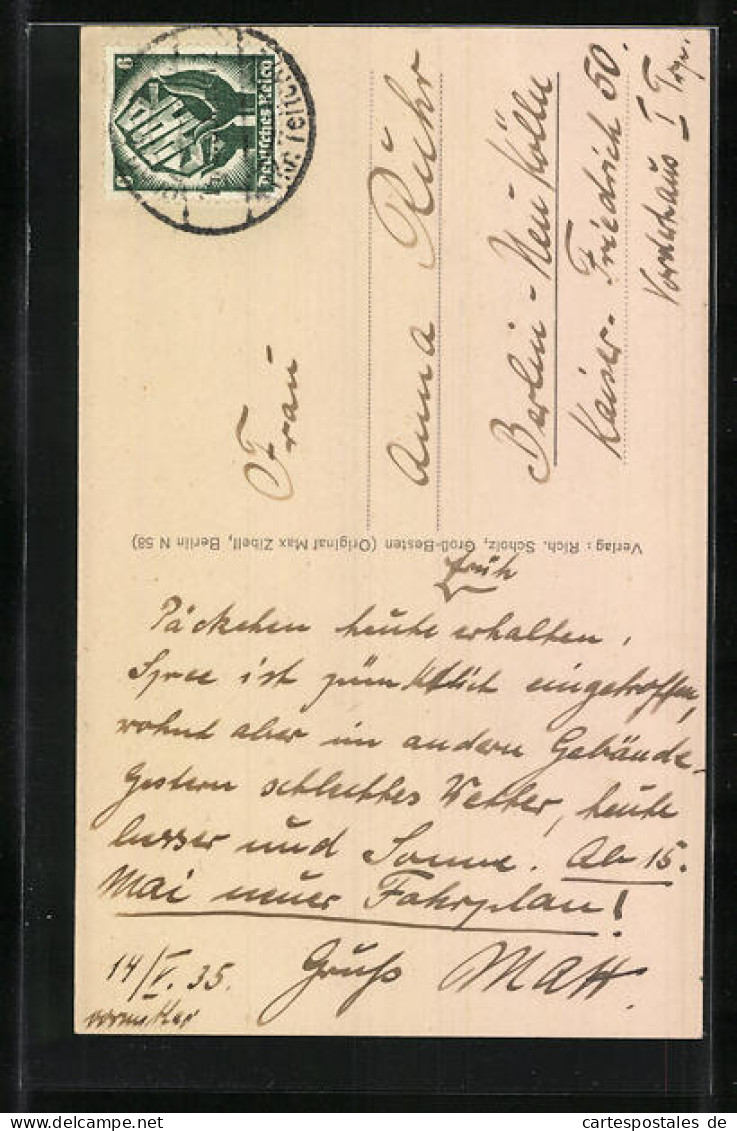 6 Deutsches Reich 6
Kr. Teltow
Frau
Anna Rŭhr
Berlin-Neukölln
Kaiser-Friedrich 50.
Vorderhaus I Trp.
Verlag: Rich. Scholz, Groß-Besten (Original Max Zibell, Berlin N 58)
früh
Päckchen heute erhalten,
Spree ist pünktlich eingetroffen,
wohnt aber im andern Gebäude.
Gestern schlechtes Wetter, heute
besser und Sonne. Ab 15.
Mai neuer Fahrplan!
14/V. 35. Gruß Max.
cartespostales de cartespostales de